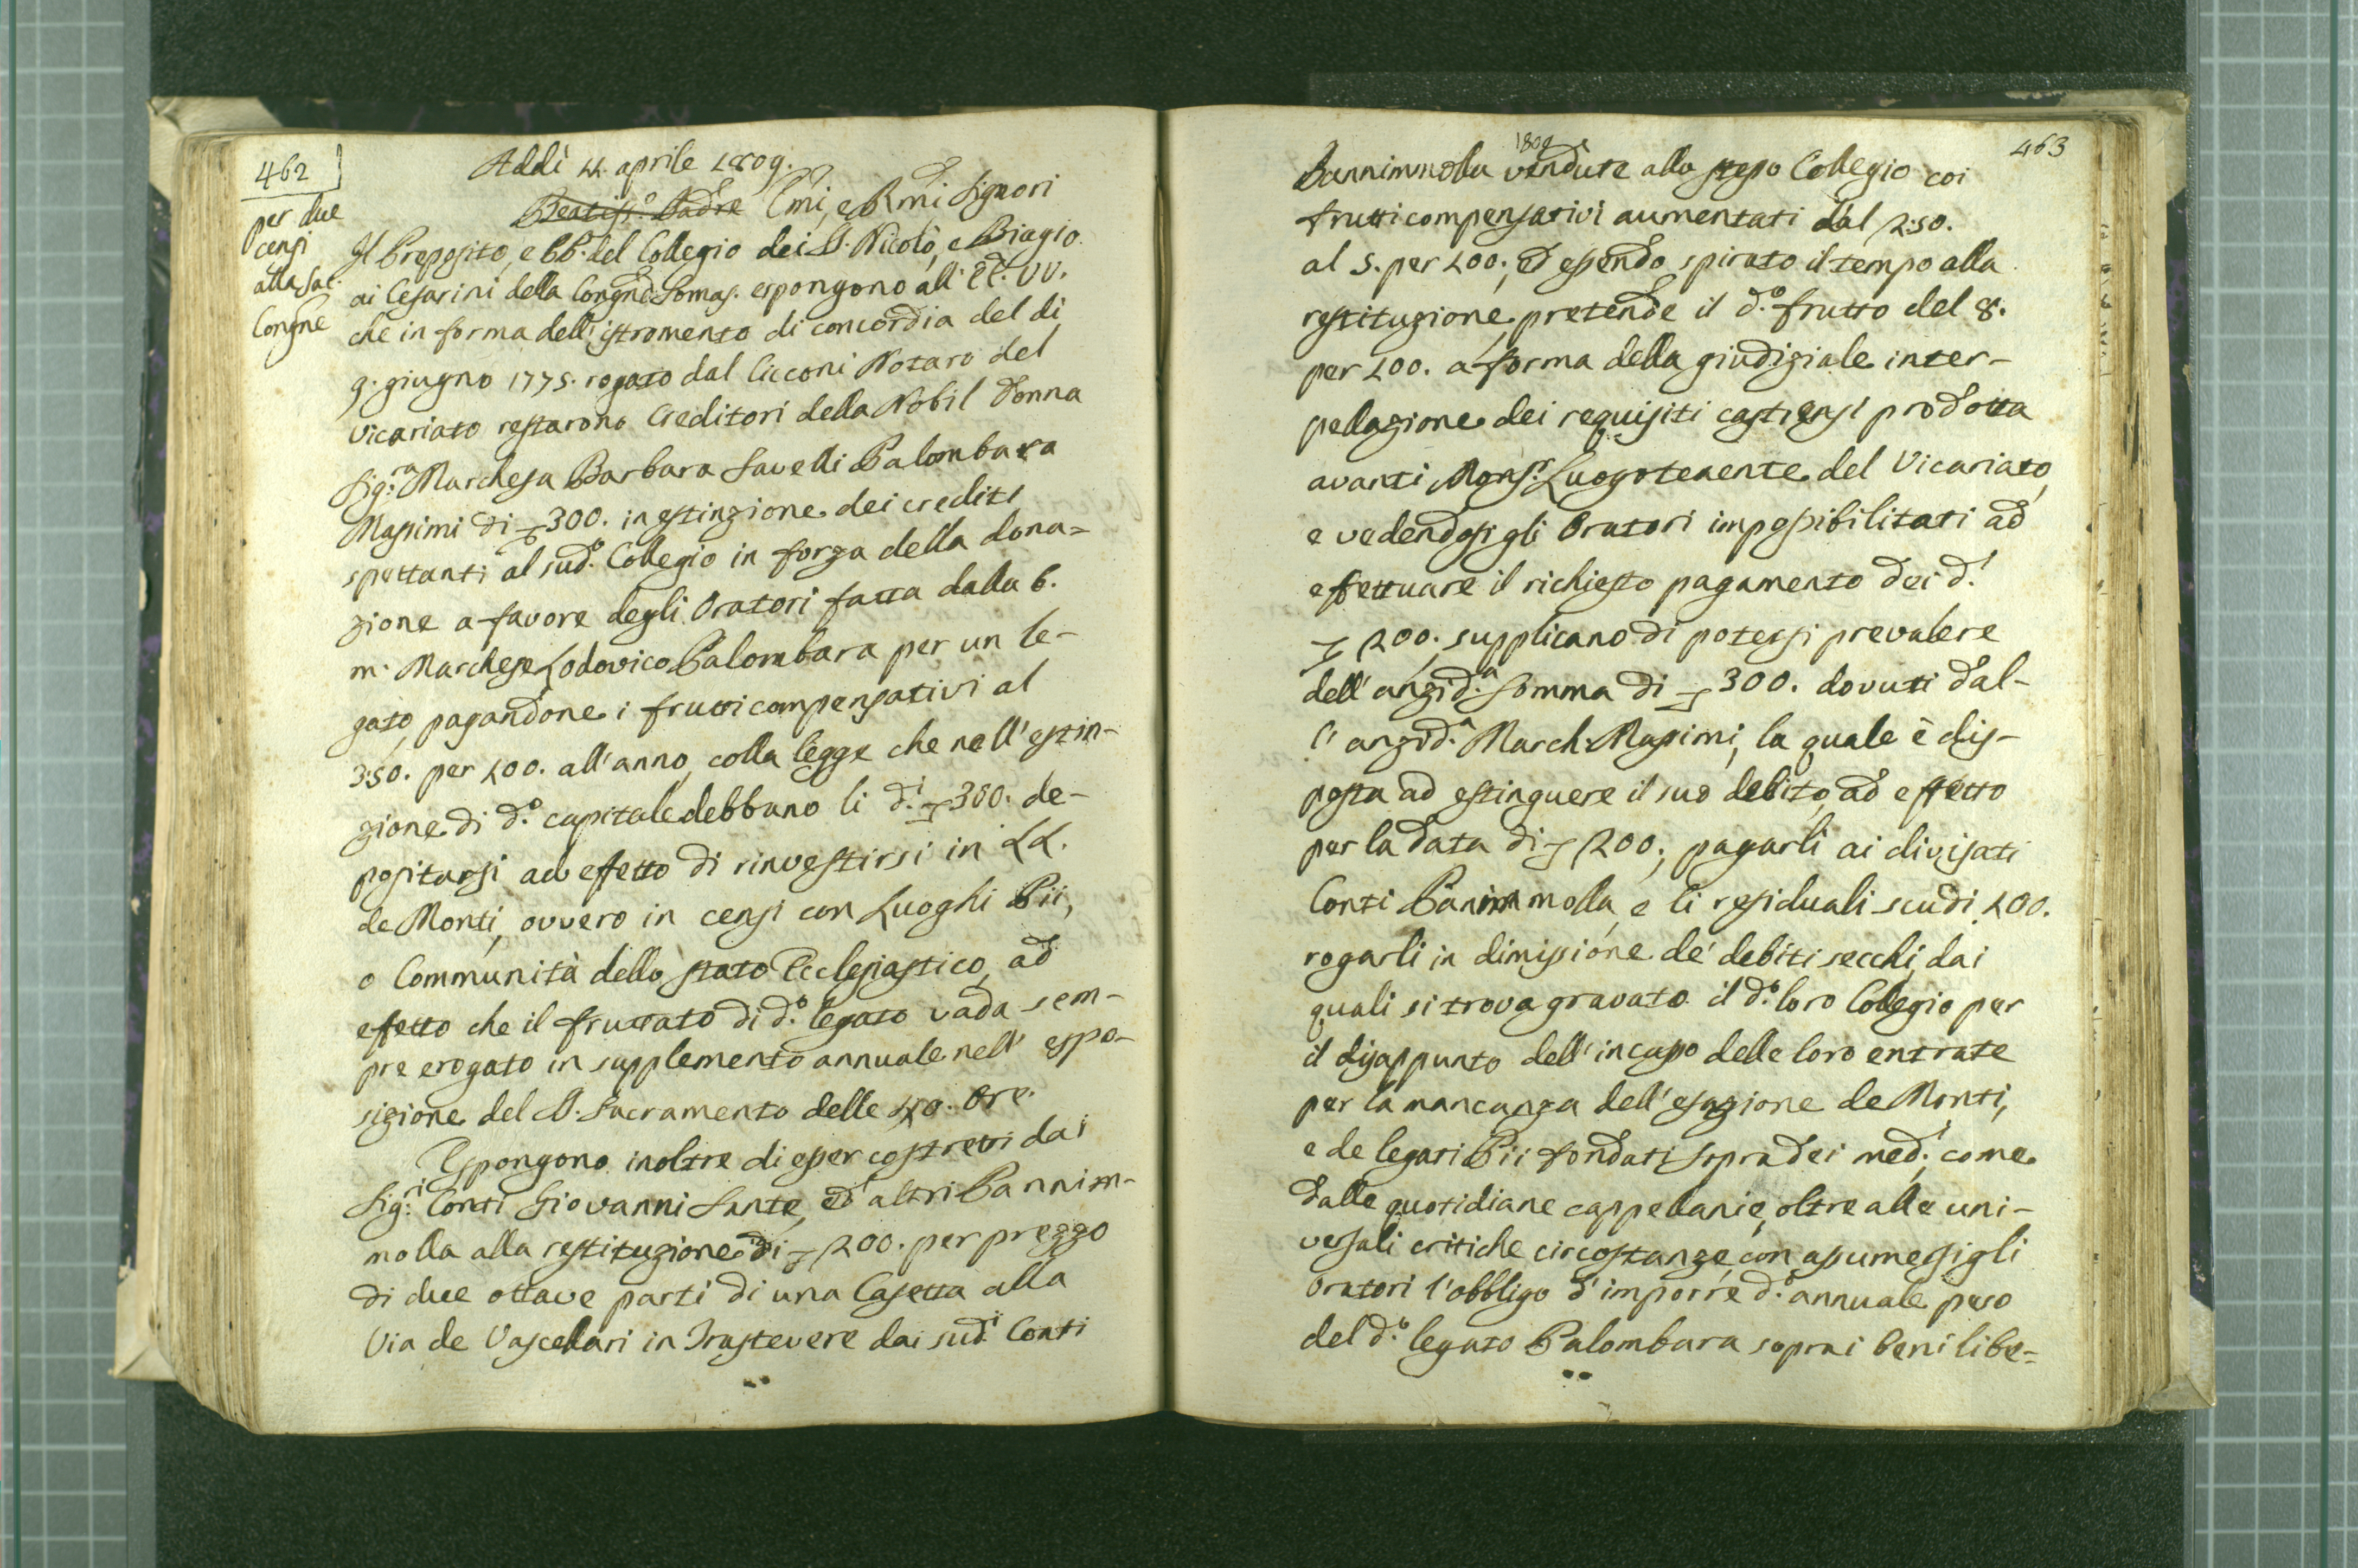 462
per due
censi
alla Sac.
Congne
Addì 11. aprile 1809.
Beatiss.o Padre Emi, e Rmi Signori
Il Preposito, e PP. del Collegio dei SS. Nicolò, e Biagio
ai Cesarini della Congne Somas. espongono all' EE. VV.
che in forma dell' istromento di concordia del dì
9. giugno 1775. rogato dal Cicconi Notaro del
Vicariato restarono Creditori della Nobil Donna
Sig:ra Marchesa Barbara Savelli Palombara
Massimi di 300. in estinzione dei crediti
spettanti al sud.o Collegio in forza della dona=
zione a favore degli Oratori fatta dalla b.
m. Marchese Lodovico Palombara per un le-
gato, pagandone i frutti compensativi al
3:50. per 100. all'anno, colla legge che nell'estin-
zione di d.o capitale debbano li d.i 300. de-
positarsi ad effetto di rinvestirsi in LL.
de Monti, ovvero in censi con Luoghi Pii,
o Communità dello stato Ecclesiastico, ad
effetto che il fruttato di d.o legato vada sem-
pre erogato in supplemento annuale nell' espo-
sizione del SS. Sacramento delle 40. Ore.
Espongono inoltre di esser costretti dai
Sig:ri Conti Giovanni Sante, ed altri Pannim-
molla alla restituzione di 200. per prezzo
di due ottave parti di una Casetta alla
Via de Vascellari in Trastevere dai sud.i Conti
463
1809
Pannimmolla vendute allo stesso Collegio coi
frutti compensativi aumentati dal 2:50.
al 5. per 100.; ed essendo spirato il tempo alla
restituzione, pretende il d.o frutto del 8.
per 100. a forma della giudiziale inter-
pellazione dei requisiti castrensi prodotta
avanti Mons.r Luogotenente del Vicariato,
e vedendosi gli Oratori impossibilitati ad
effettuare il richiesto pagamento dei d.i
200. supplicano di potersi prevalere
dell'anzid.a somma di 300. dovuti dal-
l' anzid.a March. Massimi, la quale è dis-
posta ad estinguere il suo debito, ad effetto
per la data di 200., pagarli ai divisati
Conti Pannimmolla, e li residuali scudi 100.
rogarli in dimissione de' debiti secchi, dai
quali si trova gravato il d.o loro Collegio per
il disappunto dell'incasso delle loro entrate
per la mancanza dell'esazione de Monti,
e de legati Pii fondati sopra dei med.i, come
dalle quotidiane cappellanie, oltre alle uni-
versali critiche circostanze, con assumersi gli
Oratori l'obbligo d'imporre d.o annuale peso
del d.o legato Palombara sopra i beni libe=